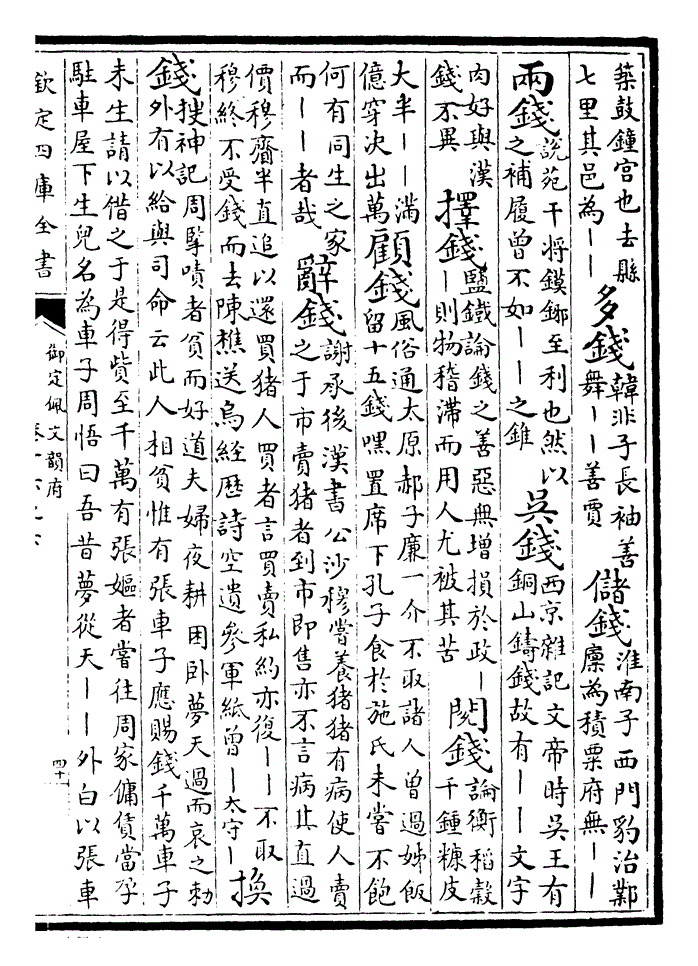 築鼓鐘宫也去縣
七里其邑為——
多錢
韓非子長袖善
舞——善賈
儲錢
淮南子西門豹治鄴
廩為積粟府無——
兩錢
說苑干将鏌鎁至利也然以
之補履曾不如——之錐
吳錢
西京雜記文帝時吳王有
銅山鑄錢故有——文字
肉好與漢
錢不異
擇錢
鹽鐵論錢之善惡無增損於政—
—則物稽滯而用人尤被其苦
閱錢
論衡稻穀
千鍾糠皮
大半——滿
億穿決出萬
顧錢
風俗通太原郝子廉一介不取諸人曾過姊飯
留十五錢嘿置席下孔子食於施氏未嘗不飽
何有同生之家
而——者哉
辭錢
謝承後漢書公沙穆嘗養猪猪有病使人賣
之于市賣猪者到市即售亦不言病其直過
價穆齎半直追以還買猪人買者言買賣私約亦復——不取
穆終不受錢而去陳樵送烏経歴詩空遺參軍紙曾—太守—
換
錢
搜神記周擥嘖者貧而好道夫婦夜耕困卧夢天過而哀之勅
外有以給與司命云此人相貧惟有張車子應賜錢千萬車子
未生請以借之于是得貲至千萬有張嫗者嘗往周家傭賃當孕
駐車屋下生兒名為車子周悟曰吾昔夢從天——外白以張車
欽定四庫全書
御定佩文韻府